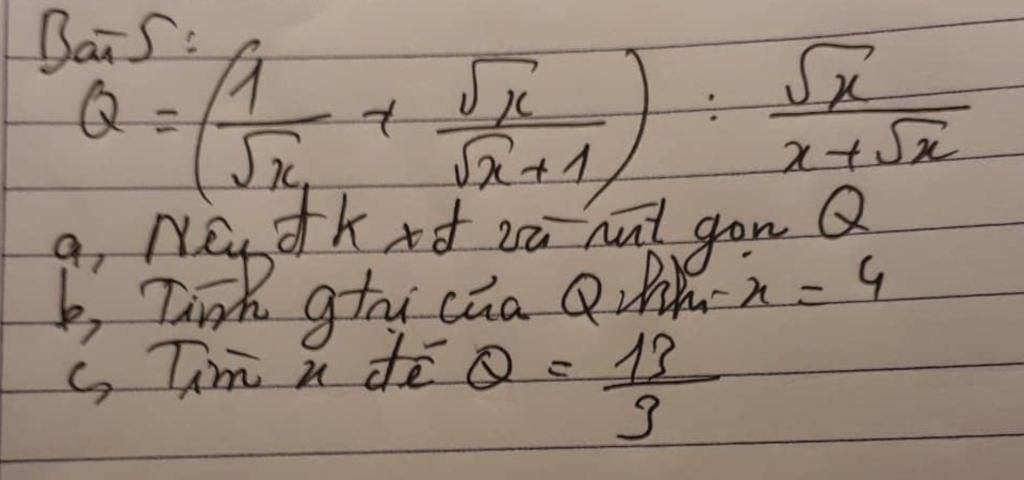 Bài 5:
Q = (1/√x + √x/(√x + 1)) : √x/(x + √x)
a, Nêu đk xđ và rút gọn Q
b, Tính gtrị của Q khi x = 4
c, Tìm x để Q = 13/3